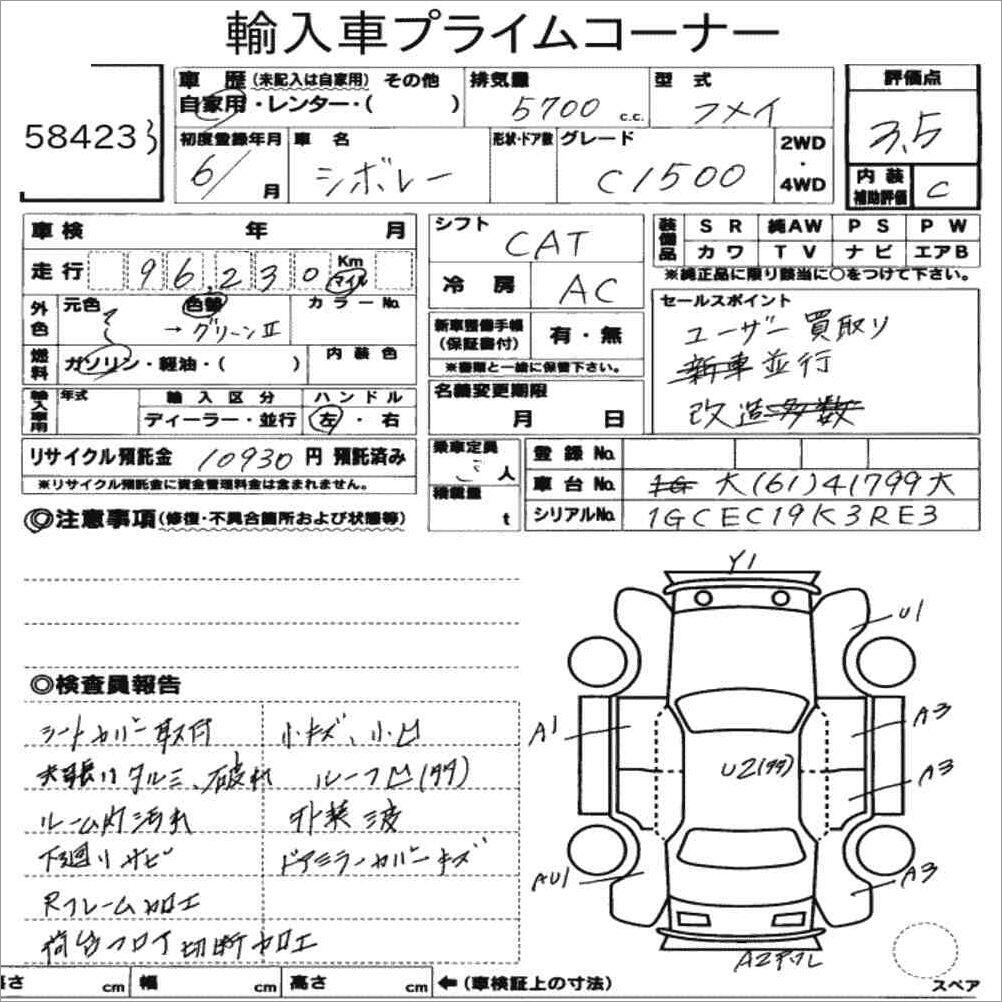 輸入車プライムコーナー
58423
車歴(未記入は自家用) その他
自家用・レンター・( )
排気量
5700 c.c.
型式
フメイ
評価点
3.5
初度登録年月
6/ 月
車名
シボレー
形状・ドア数
グレード
C1500
2WD
・
4WD
内装
補助評価
C
車検 年 月
走行 96,230 Km マイル
外色
元色
色替
→グリーンⅡ
カラーNo.
燃料
ガソリン・軽油・( )
内装色
輸入車用
年式
輸入区分
ディーラー・並行
ハンドル
左・右
リサイクル預託金 10930 円 預託済み
※リサイクル預託金に資金管理料金は含まれません。
シフト
CAT
冷房
AC
新車整備手帳
(保証書付)
有・無
※書類と一緒に保管下さい。
名義変更期限
月 日
装備品
SR 純AW PS PW
カワ TV ナビ エアB
※純正品に限り該当に○をつけて下さい。
セールスポイント
ユーザー買取り
新車並行
改造多数
乗車定員
人
積載量
t
登録No.
車台No.
大(61)41799大
シリアルNo.
1GCEC19K3RE3
◎注意事項(修復・不具合箇所および状態等)
◎検査員報告
シートカバー取付
天張りタルミ、破れ
ルーム内汚れ
下廻りサビ
Rフレーム加工
荷台フロイ切断加工
小キズ、小凹
ルーフ凹(多々)
外装波
ドアミラーカバーキズ
Y1
U1
A1
A3
U2(多々)
A3
AU1
A3
スペア
長さ cm 幅 cm 高さ cm ←(車検証上の寸法)